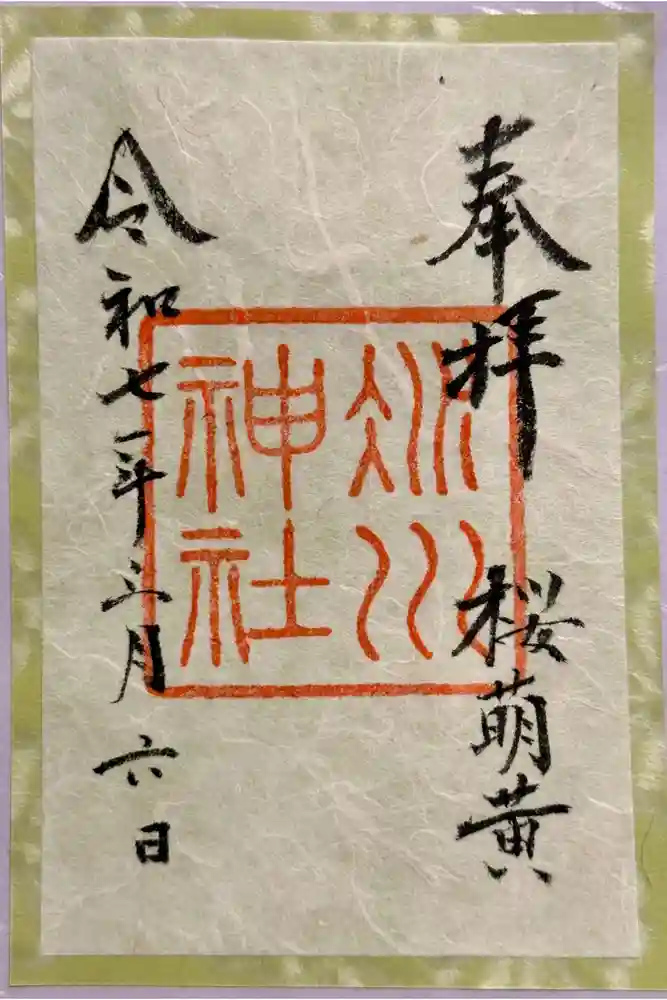 奉拝
桜萌黄
冰川
神社
令和七年三月六日